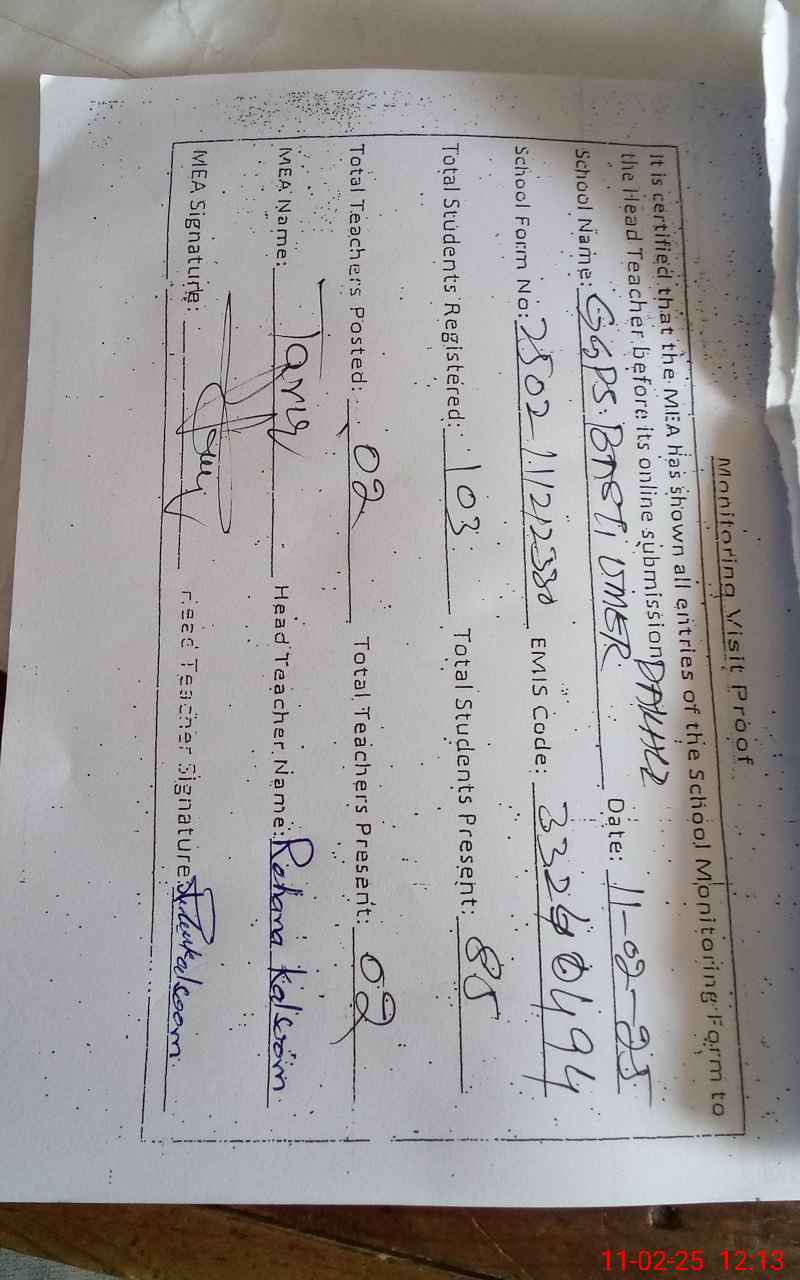 Monitoring Visit Proof
It is certified that the MEA has shown all entries of the School Monitoring Form to
the Head Teacher before its online submission
School Name: GGPS. BASTI UMER Date: 11-02-25
School Form No: EMIS Code: 33240494
Total Students Registered: 103 Total Students Present: 85
Total Teachers Posted: 02 Total Teachers Present: 02
MEA Name: Tariq Head Teacher Name: Rehana Kalsoom
MEA Signature: Head Teacher Signature:
11-02-25 12:13